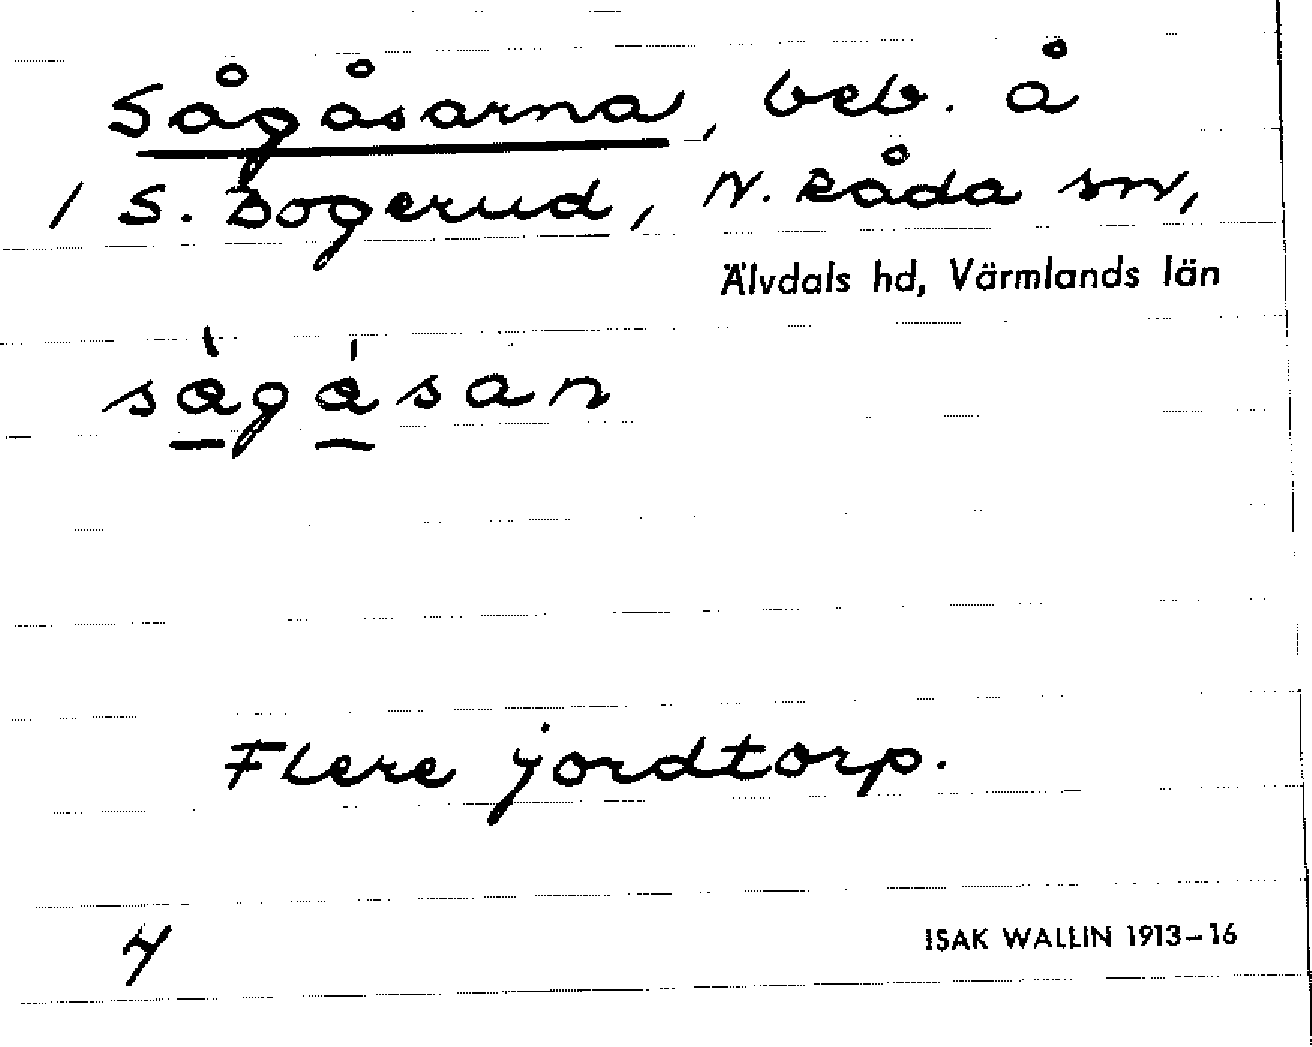 Sågåsarna, beb. å
/ S. Bogerud, N. Råda sn,
Älvdals hd, Värmlands län
sàgásan
Flere jordtorp.
4
ISAK WALLIN 1913–16